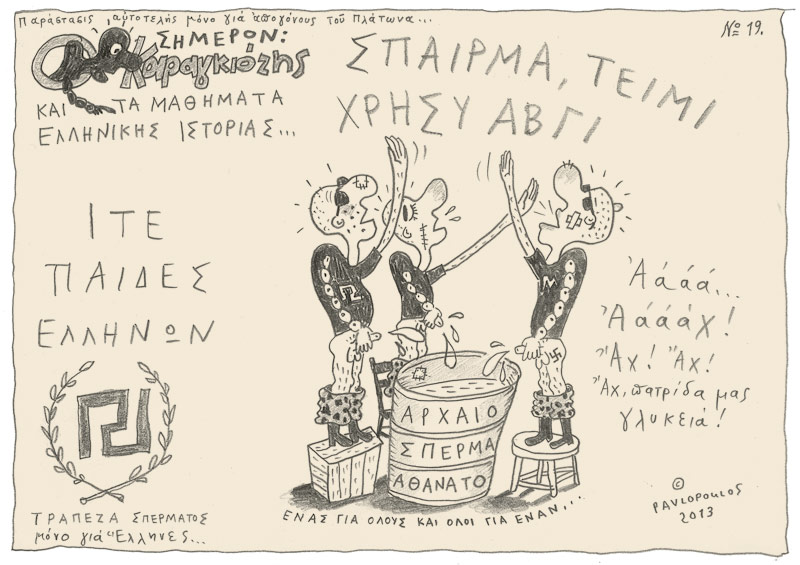 Παράστασις αὐτοτελής μόνο γιά ἀπογόνους τοῦ Πλάτωνα...
Νο 19.
ΣΗΜΕΡΟΝ:
Ο Καραγκιόζης
ΚΑΙ ΤΑ ΜΑΘΗΜΑΤΑ
ΕΛΛΗΝΙΚΗΣ ΙΣΤΟΡΙΑΣ...
ΣΠΑΙΡΜΑ, ΤΕΙΜΙ
ΧΡΗΣΥ ΑΒΓΙ
ΙΤΕ
ΠΑΙΔΕΣ
ΕΛΛΗΝΩΝ
ΤΡΑΠΕΖΑ ΣΠΕΡΜΑΤΟΣ
μόνο γιά Ἕλληνες...
Μ
ΑΡΧΑΙΟ
ΣΠΕΡΜΑ
ΑΘΑΝΑΤΟ
ΕΝΑΣ ΓΙΑ ΟΛΟΥΣ ΚΑΙ ΟΛΟΙ ΓΙΑ ΕΝΑΝ...
Ἀάάά...
Ἀάάάχ!
Ἄχ! Ἄχ!
Ἄχ, πατρίδα μας
γλυκειά!
©
PAVLOPOULOS
2013